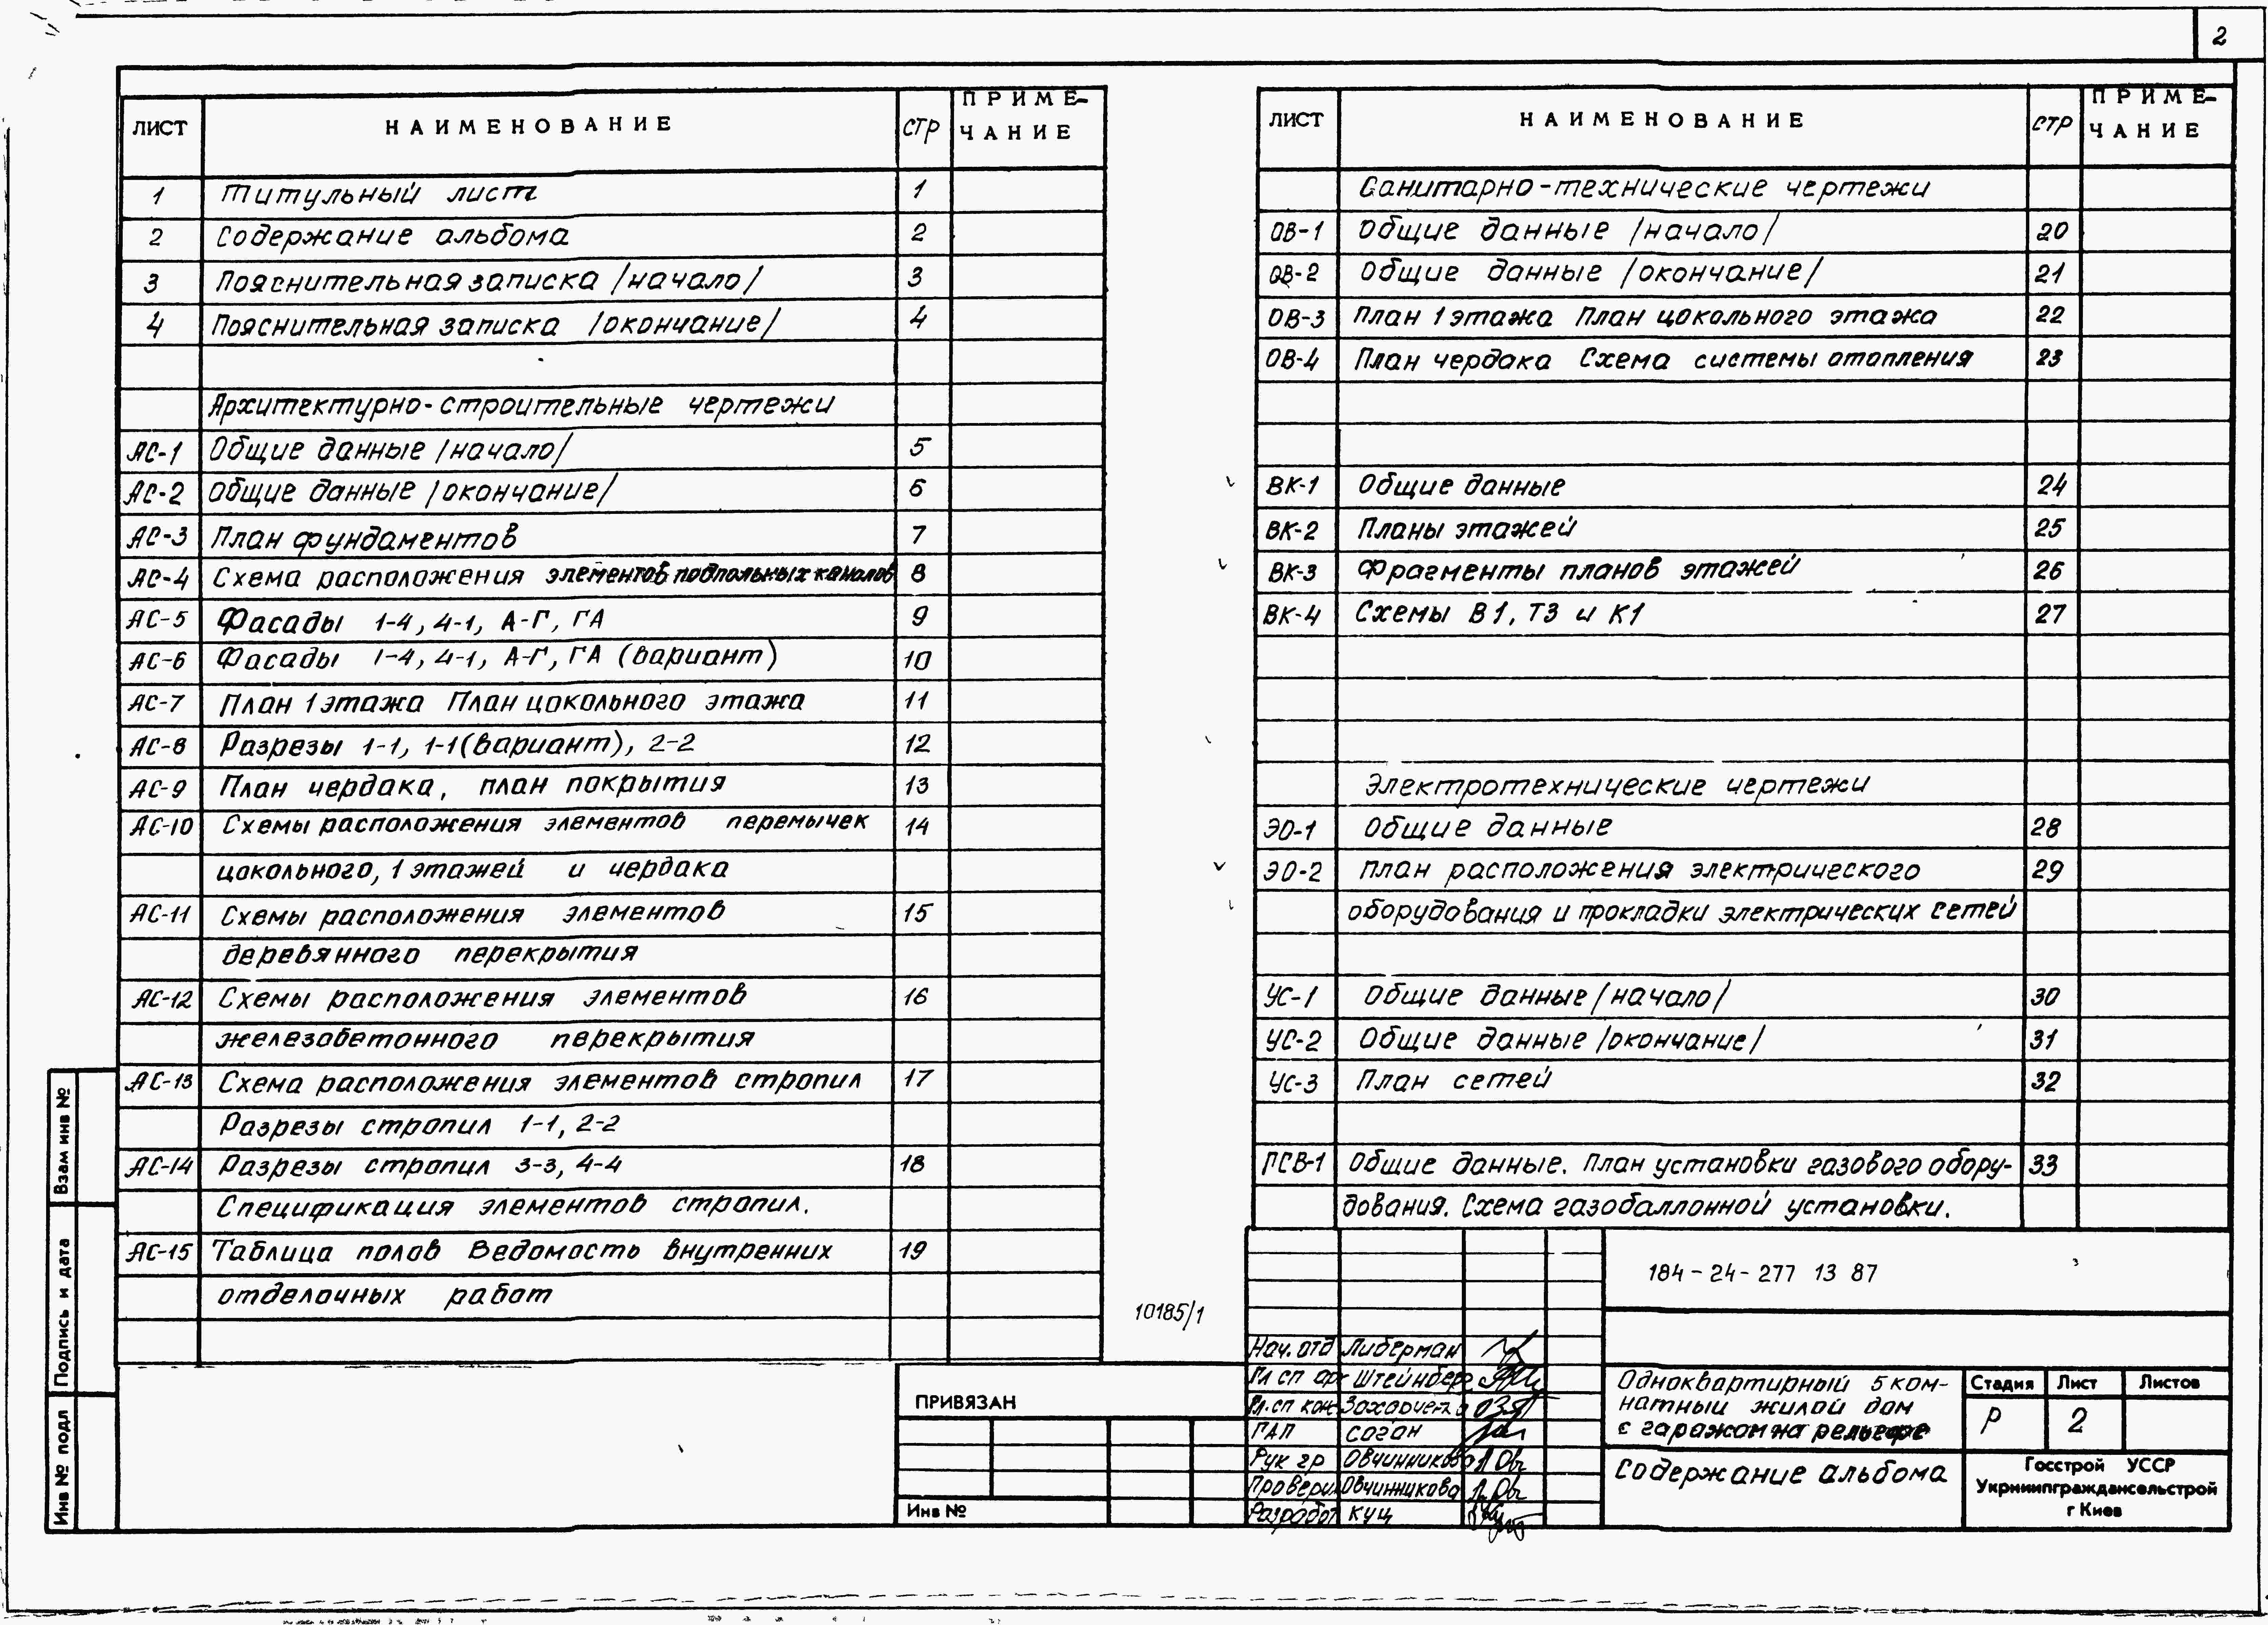 2
ЛИСТ НАИМЕНОВАНИЕ СТР ПРИМЕ-
ЧАНИЕ
1 Титульный лист 1
2 Содержание альбома 2
3 Пояснительная записка /начало/ 3
4 Пояснительная записка /окончание/ 4
Архитектурно-строительные чертежи
АС-1 Общие данные /начало/ 5
АС-2 Общие данные /окончание/ 6
АС-3 План фундаментов 7
АС-4 Схема расположения элементов подпольных каналов 8
АС-5 Фасады 1-4, 4-1, А-Г, ГА 9
АС-6 Фасады 1-4, 4-1, А-Г, ГА (вариант) 10
АС-7 План 1 этажа План цокольного этажа 11
АС-8 Разрезы 1-1, 1-1 (вариант), 2-2 12
АС-9 План чердака, план покрытия 13
АС-10 Схемы расположения элементов перемычек 14
цокольного, 1 этажей и чердака
АС-11 Схемы расположения элементов 15
деревянного перекрытия
АС-12 Схемы расположения элементов 16
железобетонного перекрытия
АС-13 Схема расположения элементов стропил 17
Разрезы стропил 1-1, 2-2
АС-14 Разрезы стропил 3-3, 4-4 18
Спецификация элементов стропил.
АС-15 Таблица полов Ведомость внутренних 19
отделочных работ
ЛИСТ НАИМЕНОВАНИЕ СТР ПРИМЕ-
ЧАНИЕ
Санитарно-технические чертежи
ОВ-1 Общие данные /начало/ 20
ОВ-2 Общие данные /окончание/ 21
ОВ-3 План 1 этажа План цокольного этажа 22
ОВ-4 План чердака Схема системы отопления 23
ВК-1 Общие данные 24
ВК-2 Планы этажей 25
ВК-3 Фрагменты планов этажей 26
ВК-4 Схемы В1, Т3 и К1 27
Электротехнические чертежи
ЭО-1 Общие данные 28
ЭО-2 План расположения электрического 29
оборудования и прокладки электрических сетей
УС-1 Общие данные /начало/ 30
УС-2 Общие данные /окончание/ 31
УС-3 План сетей 32
ГСВ-1 Общие данные. План установки газового обору- 33
дования. Схема газобаллонной установки.
10185/1
184-24-277 13 87
Нач. отд Либерман
Гл сп Штейнберг
Гл. сп кон
ГАП Соган
Рук гр Овчинникова
Проверил Овчинникова
Разработ Куц
Одноквартирный 5 ком-
натный жилой дом
с гаражом на рельефе
Содержание альбома
Стадия Лист Листов
Р 2
Госстрой УССР
Укрниипграждансельстрой
г Киев
ПРИВЯЗАН
Инв №
Взам инв №
Подпись и дата
Инв № подл